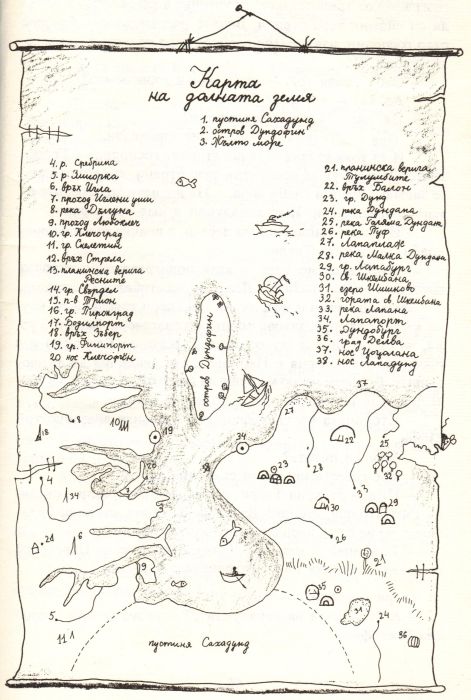 Карта
на долната земя
1. пустиня Сахадунд
2. остров Дундофин
3. Жълто море
4. р. Сребрина
5. р. Эморка
6. връх Игла
7. проход Иглени уши
8. река Дългуна
9. проход Любоклег
10. гр. Клечоград
11. гр. Скелетин
12. връх Стрела
13. планинска верига
Ресните
14. гр. Свърдел
15. п-в Трион
16. гр. Пиронград
17. Бодилпорт
18. връх Зъбер
19. гр. Финипорт
20 нос Клечофен
21. планинска верига
Тулумбите
22. връх Балон
23. гр. Дунд
24. река Дундана
25. река Голяма Дундана
26. река Пуф
27. Лапаплаж
28. река Малка Дундана
29. гр. Лапабург
30. св. Шкембана
31. езеро Шишково
32. гората св. Шкембана
33. река Лапана
34. Лапапорт
35. Дундобург
36. град Делва
37. нос Цоцолана
38. нос Лападунд
остров Дундофин
37
27
8
10
19
18
34
22
25
38
23
28
32
4
20
34
33
29
30
6
26
21
19
35
31
24
5
11
36
пустиня Сахадунд